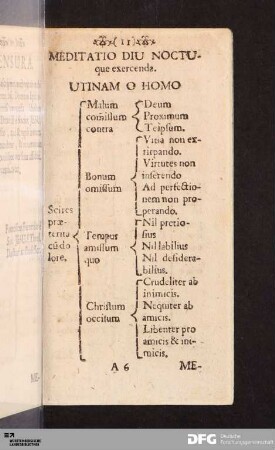 ( 11 )
MEDITATIO DIU NOCTU-
que exercenda.
UTINAM O HOMO
Scires
præ-
terita
cū do
lore.
Malum
comissum
contra
Deum
Proximum
Teipsum.
Bonum
omissum
Vitia non ex-
tirpando.
Virtutes non
inserendo
Ad perfectio-
nem non pro-
perando.
Tempus
amissum
quo
Nil pretio-
sius
Nil labilius
Nil desidera-
bilius.
Christum
occisum
Crudeliter ab
inimicis.
Nequiter ab
amicis.
Libenter pro
amicis & ini-
micis.
A 6
ME-
NSURA
ME-
DFG Deutsche
Forschungsgemeinschaft